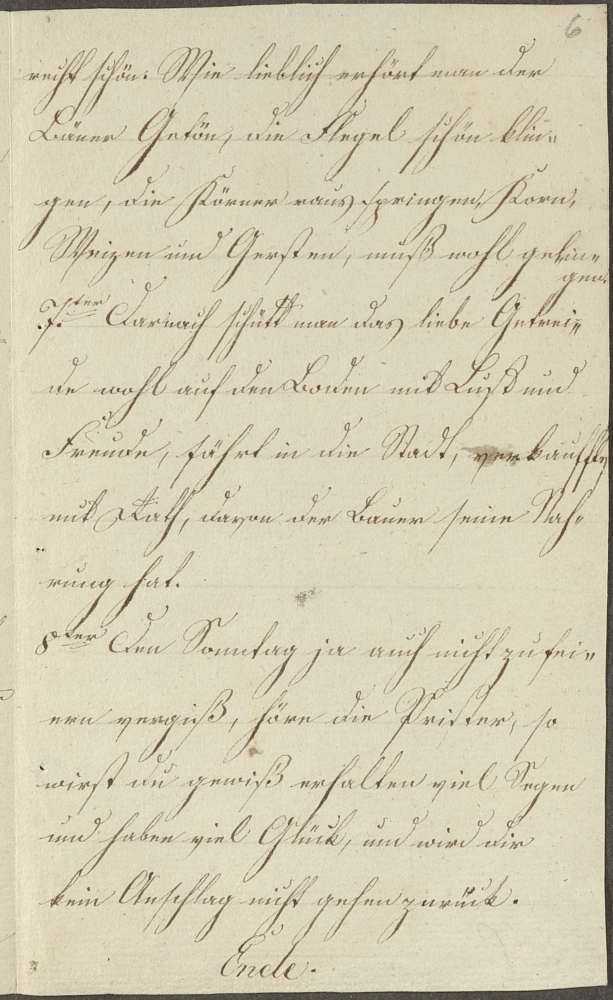 6
recht schön: Wie lieblich erhört man der
Bäuer Getön, die Flegel schön klin-
gen, die Körner raus springen, Korn,
Weizen und Gersten, muß wohl gelin-
gen.
7.ter Darnach schütt man das liebe Getrei-
de wohl auf den Boden mit Lust und
Freude, fährt in die Stadt, verkauffts
mit Rath, davon der Bauer seine Nah-
rung hat.
8ter Den Sonntag ja auch nicht zu fei-
ern vergiß, höre die Prister, so
wirst du gewiß erhalten viel Segen
und haben viel Glück, und wird dir
kein Anschlag nicht gehen zurück.
Ende.